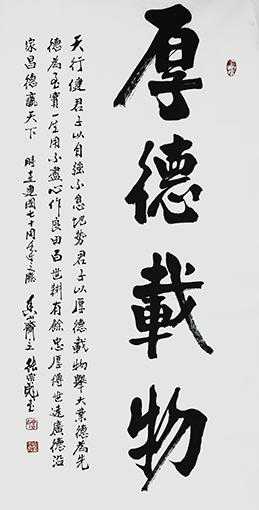 厚德載物
天行健君子以自強不息地勢君子以厚德載物舉大業德為先
德為至寶一生用不盡心作良田百世耕有餘忠厚傳世遠廣德沿
家昌德贏天下 時在建國七十周年之際 齋主 張書